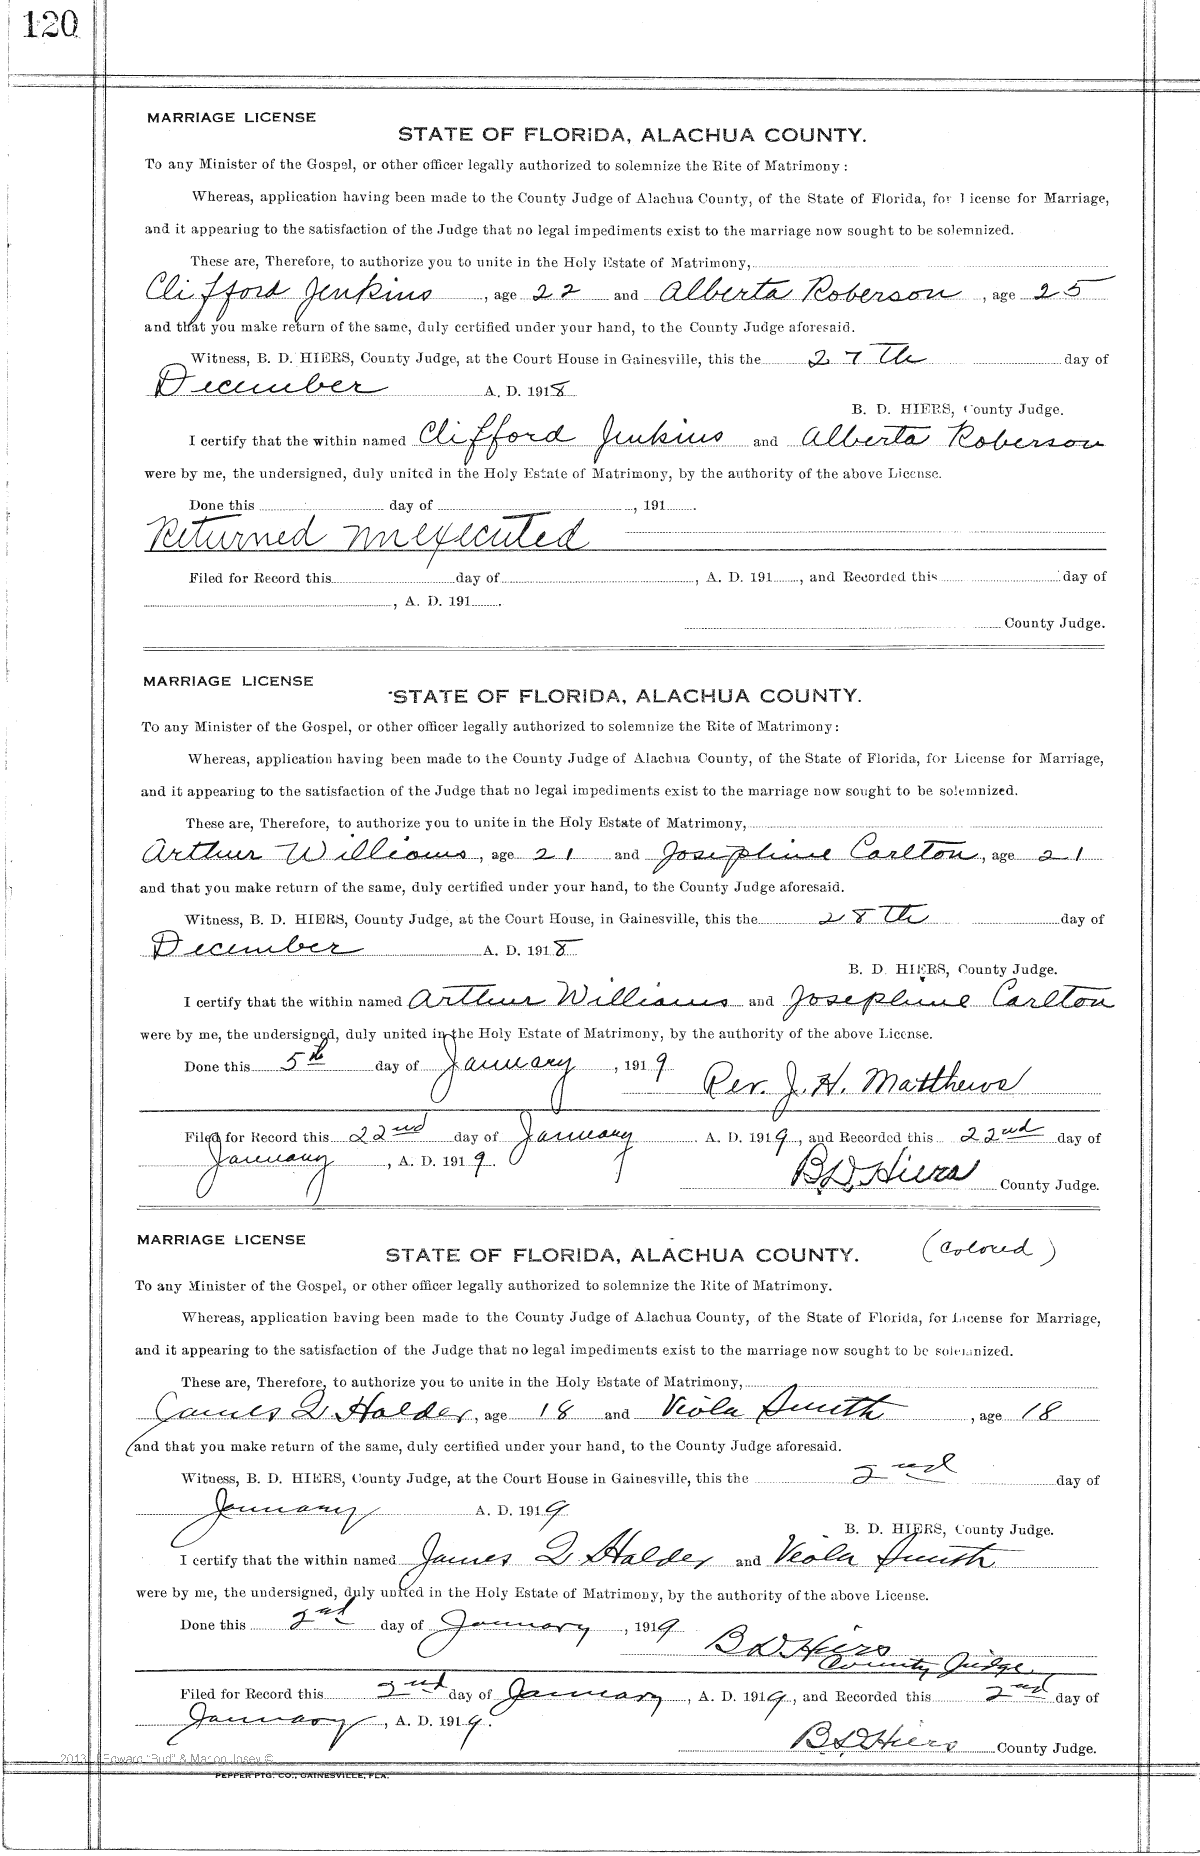 120
MARRIAGE LICENSE
STATE OF FLORIDA, ALACHUA COUNTY.
To any Minister of the Gospel, or other officer legally authorized to solemnize the Rite of Matrimony:
Whereas, application having been made to the County Judge of Alachua County, of the State of Florida, for License for Marriage,
and it appearing to the satisfaction of the Judge that no legal impediments exist to the marriage now sought to be solemnized.
These are, Therefore, to authorize you to unite in the Holy Estate of Matrimony,
Clifford Jenkins, age 22 and Alberta Roberson, age 25
and that you make return of the same, duly certified under your hand, to the County Judge aforesaid.
Witness, B. D. HIERS, County Judge, at the Court House in Gainesville, this the 27th day of
December A. D. 1918
B. D. HIERS, County Judge.
I certify that the within named Clifford Jenkins and Alberta Roberson
were by me, the undersigned, duly united in the Holy Estate of Matrimony, by the authority of the above License.
Done this day of , 191 .
Returned unexecuted
Filed for Record this day of , A. D. 191 , and Recorded this day of
, A. D. 191 .
County Judge.
MARRIAGE LICENSE
STATE OF FLORIDA, ALACHUA COUNTY.
To any Minister of the Gospel, or other officer legally authorized to solemnize the Rite of Matrimony:
Whereas, application having been made to the County Judge of Alachua County, of the State of Florida, for License for Marriage,
and it appearing to the satisfaction of the Judge that no legal impediments exist to the marriage now sought to be solemnized.
These are, Therefore, to authorize you to unite in the Holy Estate of Matrimony,
Arthur Williams, age 21 and Josephine Carlton, age 21
and that you make return of the same, duly certified under your hand, to the County Judge aforesaid.
Witness, B. D. HIERS, County Judge, at the Court House, in Gainesville, this the 28th day of
December A. D. 1918
B. D. HIERS, County Judge.
I certify that the within named Arthur Williams and Josephine Carlton
were by me, the undersigned, duly united in the Holy Estate of Matrimony, by the authority of the above License.
Done this 5th day of January, 1919
Rev. J. H. Matthews
Filed for Record this 22nd day of January A. D. 1919, and Recorded this 22nd day of
January, A. D. 1919.
B. D. Hiers County Judge.
MARRIAGE LICENSE
STATE OF FLORIDA, ALACHUA COUNTY. (Colored)
To any Minister of the Gospel, or other officer legally authorized to solemnize the Rite of Matrimony.
Whereas, application having been made to the County Judge of Alachua County, of the State of Florida, for License for Marriage,
and it appearing to the satisfaction of the Judge that no legal impediments exist to the marriage now sought to be solemnized.
These are, Therefore, to authorize you to unite in the Holy Estate of Matrimony,
James Q Halder, age 18 and Viola Smith, age 18
and that you make return of the same, duly certified under your hand, to the County Judge aforesaid.
Witness, B. D. HIERS, County Judge, at the Court House in Gainesville, this the 2nd day of
January A. D. 1919
B. D. HIERS, County Judge.
I certify that the within named James Q Halder and Viola Smith
were by me, the undersigned, duly united in the Holy Estate of Matrimony, by the authority of the above License.
Done this 2nd day of January, 1919
B D Hiers
County Judge
Filed for Record this 2nd day of January, A. D. 1919, and Recorded this 2nd day of
January, A. D. 1919.
B D Hiers County Judge.
2013 Edward "Bud" & Marion Josey ©
PEPPER PTG. CO., GAINESVILLE, FLA.